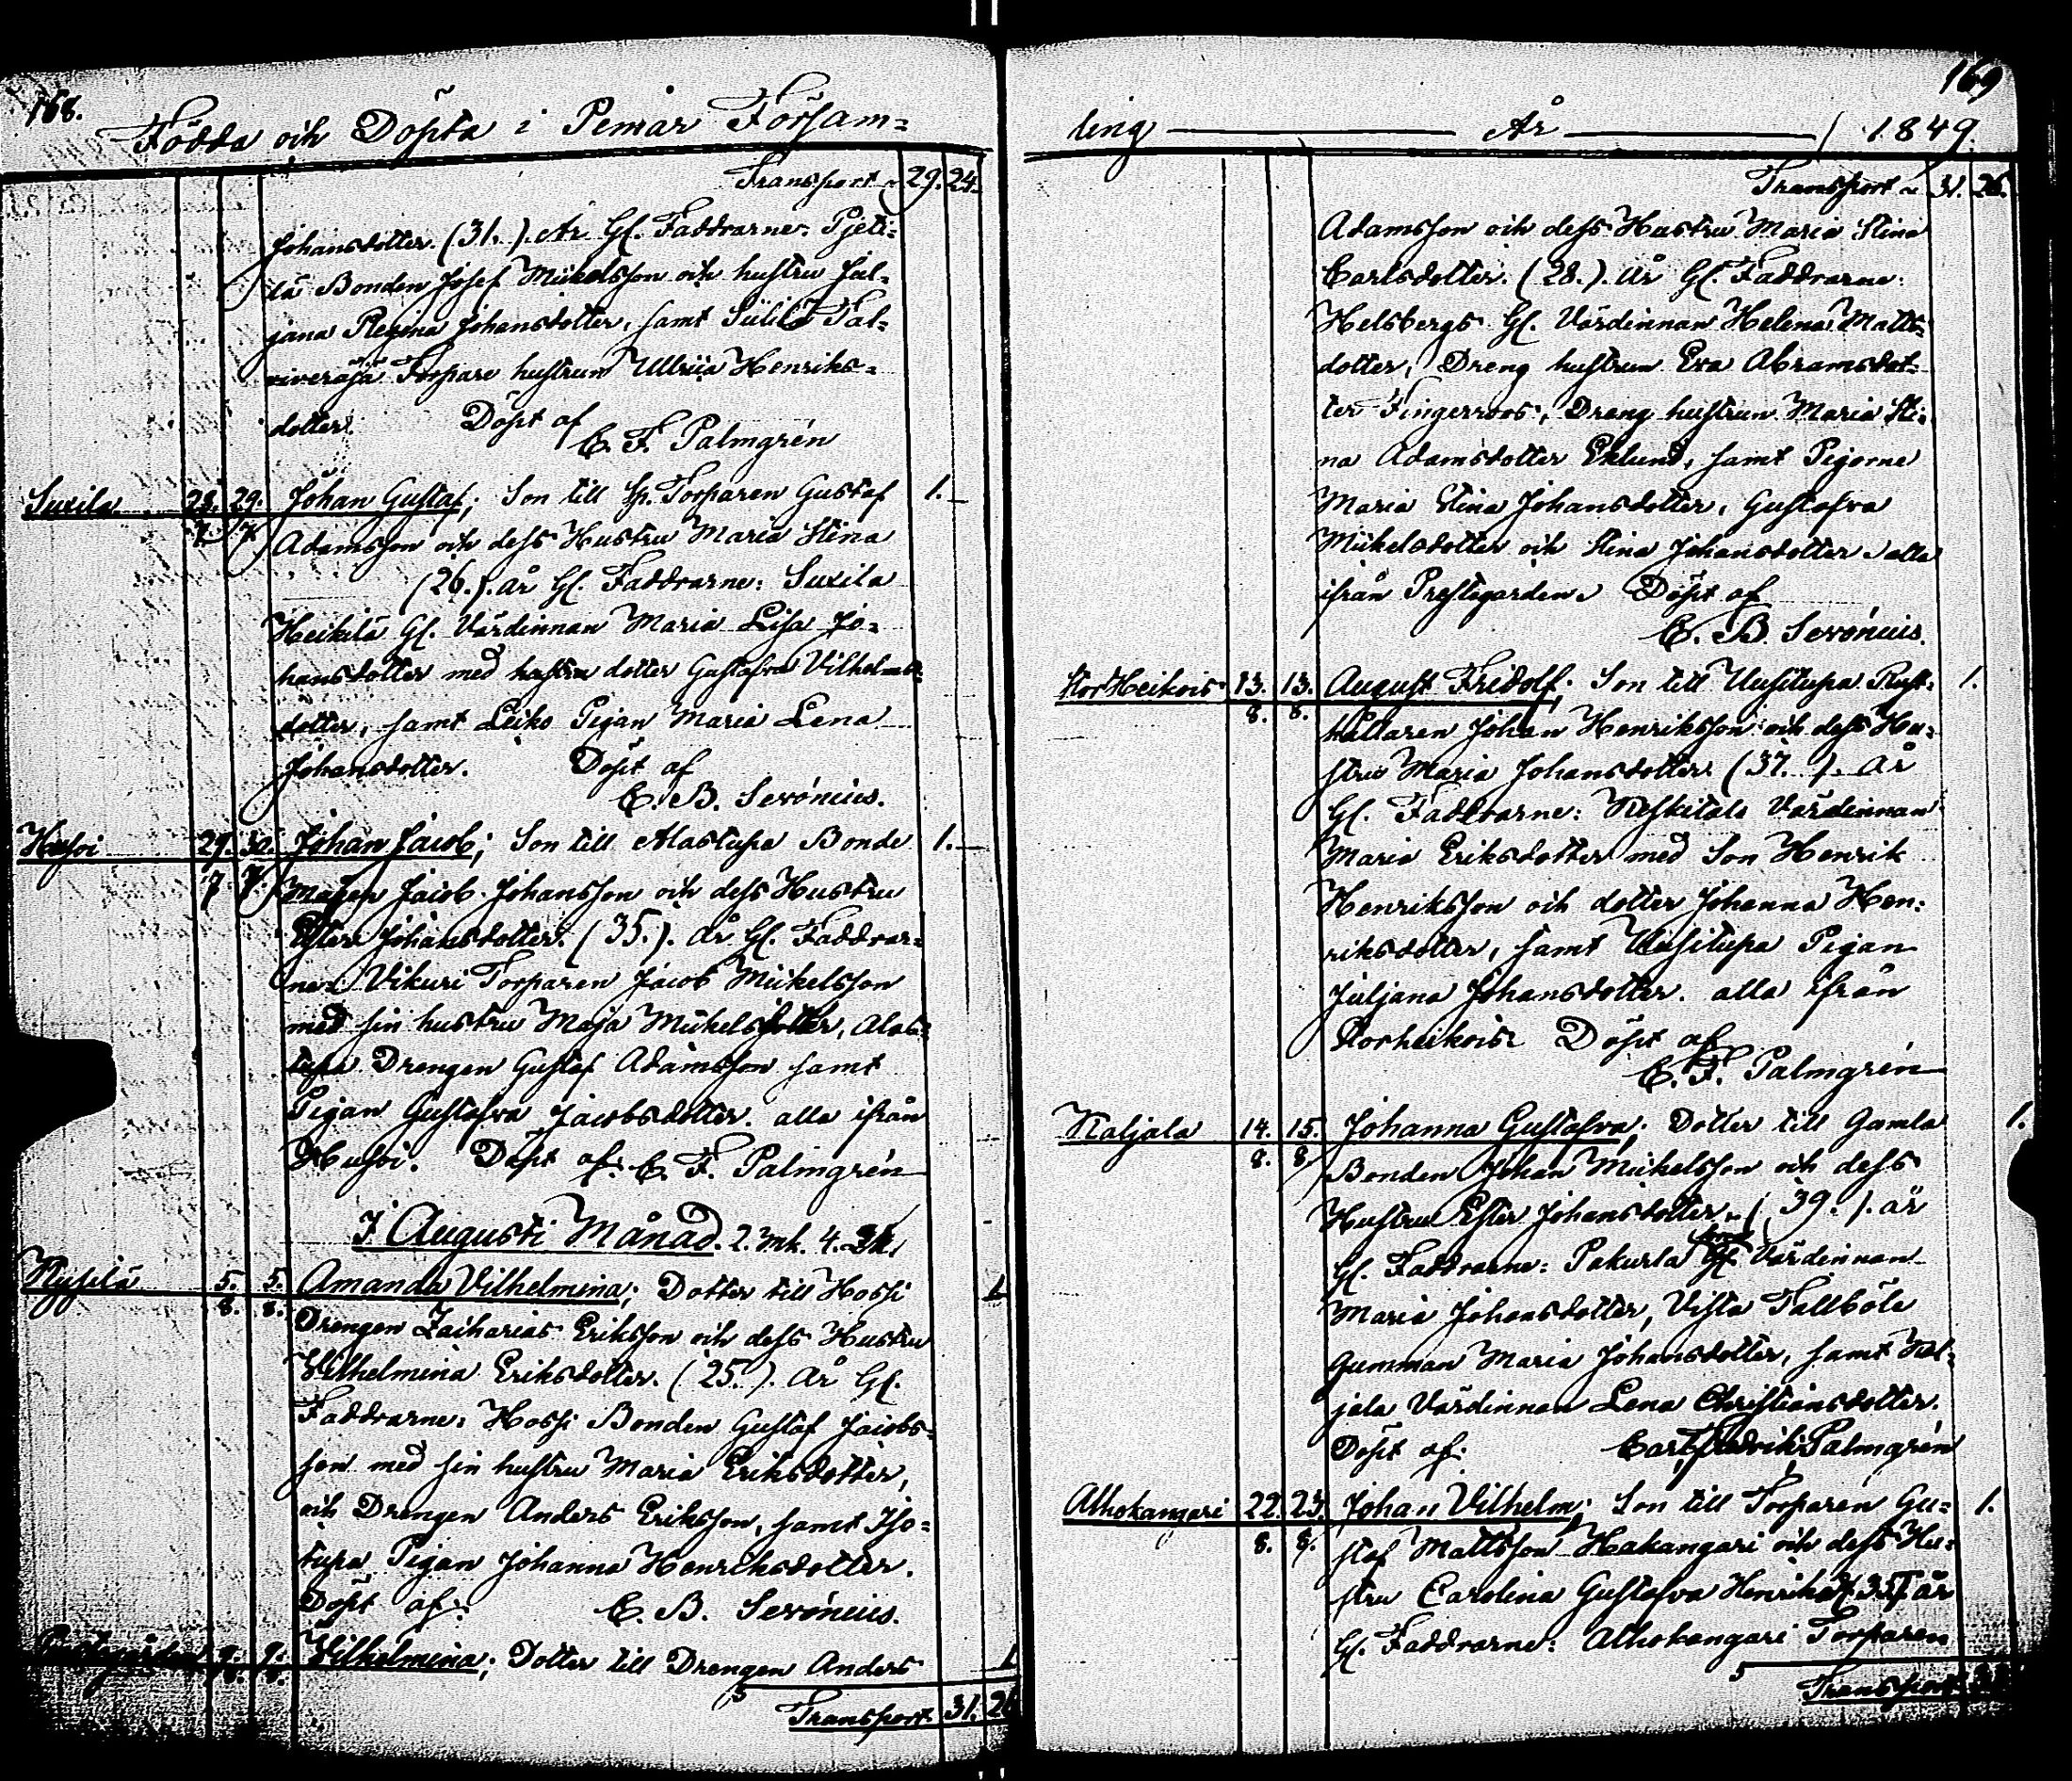 168.
Födda och Döpta i Pemar Försam=
Transport 29. 24.
Johansdotter. (31.). År Gl. Faddrarne: Pjeti=
lä Bonden Josef Mickelsson och hustru Jul=
jana Regina Johansdotter, samt Tal=
Torpare hustrun Ulrica Henriks=
dotter. Döpt af
C. F. Palmgrén
Suxila 28. 29. Johan Gustaf; Son till Sp. Torparen Gustaf 1.
7. 7. Adamsson och dess Hustru Maria Stina
(26.). år Gl. Faddrarne: Suxila
Heikilä Gl. Värdinnan Maria Lisa Jo=
hansdotter med dotter Gustafva Vilhelms=
dotter, samt Leiko Pigan Maria Lena
Johansdotter. Döpt af
C. B. Serónius.
Husoi 29. 30. Johan Jacob; Son till Alastupa Bonde 1.
7 7. Magen Jacob Johansson och dess Hustru
Ester Johansdotter. (35.). år Gl. Faddrar=
ne: Vikuri Torparen Jacob Mickelsson
med sin hustru Maja Mickelsdotter, Alas=
tupa Drengen Gustaf Adamsson samt
Pigan Gustafva Jacobsdotter. alla ifrån
Husoi. Döpt af: C. F. Palmgrén
I Augusti Månad. 2. mk. 4.
5. 5. Amanda Vilhelmina; Dotter till Hossi 1
8. 8. Drengen Zacharias Eriksson och dess Hustru
Vilhelmina Eriksdotter. (25.). År Gl.
Faddrarne: Hossi Bonden Gustaf Jacobs=
son med sin hustru Maria Eriksdotter,
och Drengen Anders Eriksson, samt Iso=
tupa Pigan Johanna Henriksdotter.
Döpt af: C. B. Serónius.
Vilhelmina; Dotter till Drengen Anders 1
5
Transport. 31. 26
169
ling År 1849.
Transport 31. 26.
Adamsson och dess Hustru Maria Stina
Carlsdotter. (28.). år Gl. Faddrarne:
Helsbergs Gl. Värdinnan Helena Matts=
dotter, Dreng hustrun Eva Abramsdot=
ter Fingerroos, Dreng hustrun Maria Sti=
na Adamsdotter Eklund, samt Pigorne
Maria Stina Johansdotter, Gustafva
Mickelsdotter och Stina Johansdotter alla
ifrån Prestgården. Döpt af
C. B. Serónius.
StorHeikois 13. 13. August Fridolf; Son till Uusitupa Rust= 1.
8. 8. hållaren Johan Henriksson och dess Hu=
stru Maria Johansdotter (37.). År
Gl. Faddrarne: Värdinnan
Maria Eriksdotter med Son Henrik
Henriksson och dotter Johanna Hen=
riksdotter, samt Uusitupa Pigan
Juljana Johansdotter. alla ifrån
Storheikois. Döpt af
C. F. Palmgrén
Naljala 14. 15. Johanna Gustafva; Dotter till Gamla 1.
8. 8. Bonden Johan Mickelsson och dess
Hustru Ester Johansdotter. (39.). år
Gl. Faddrarne: Pakurla Värdinnan
Maria Johansdotter, Vista Tallböle
Gumman Maria Johansdotter, samt Nal=
jala Värdinnan Lena Christiansdotter.
Döpt af: Carl Fredrik Palmgrén
Alhokangari 22. 23. Johan Vilhelm; Son till Torparen Gu= 1.
8. 8. staf Mattsson Hakangari och dess Hu=
stru Carolina Gustafva Henriksd (35) år
Gl. Faddrarne: Alhokangari Torparen
5
Transport